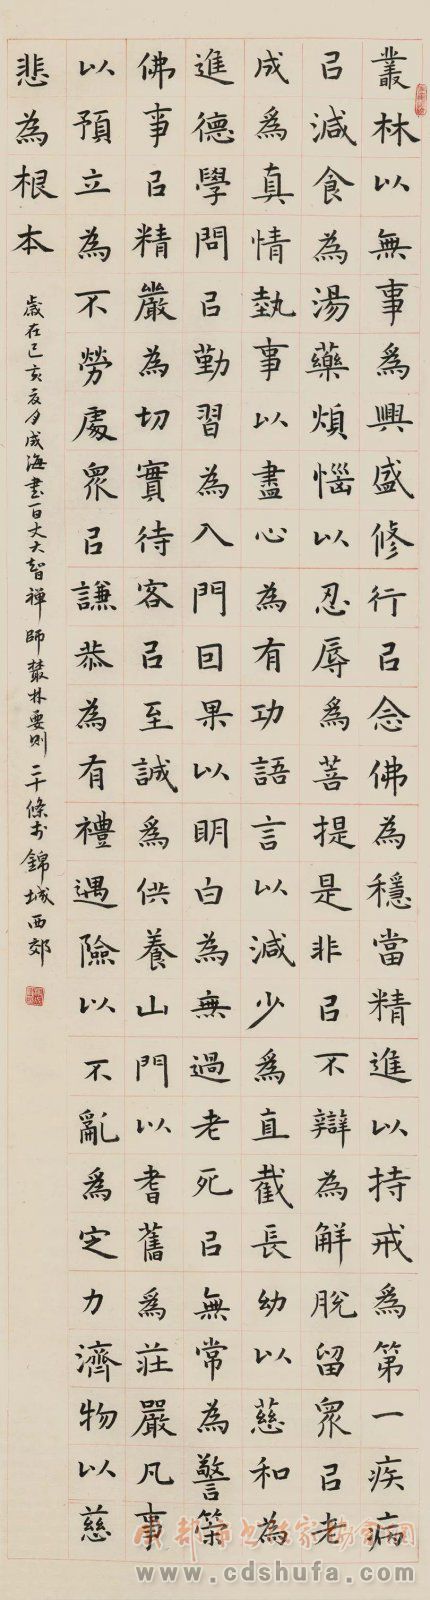 叢林以無事爲興盛修行㠯念佛為穩當精進以持戒爲第一疾病
㠯減食為湯藥煩惱以忍辱爲菩提是非㠯不辯為解脫留眾㠯老
成爲真情執事以盡心為有功語言以減少爲直截長幼以慈和為
進德學問㠯勤習為入門囙果以明白為無過老死㠯無常為警策
佛事㠯精嚴為切實待客㠯至誠爲供養山門以耆舊爲莊嚴凡事
以預立為不勞處眾㠯謙恭為有禮遇險以不亂爲定力濟物以慈
悲為根本
歲在己亥夏月成海書百丈大智禪師叢林要則二十條於錦城西郊
成都市书法家协会网
www.cdshufa.com